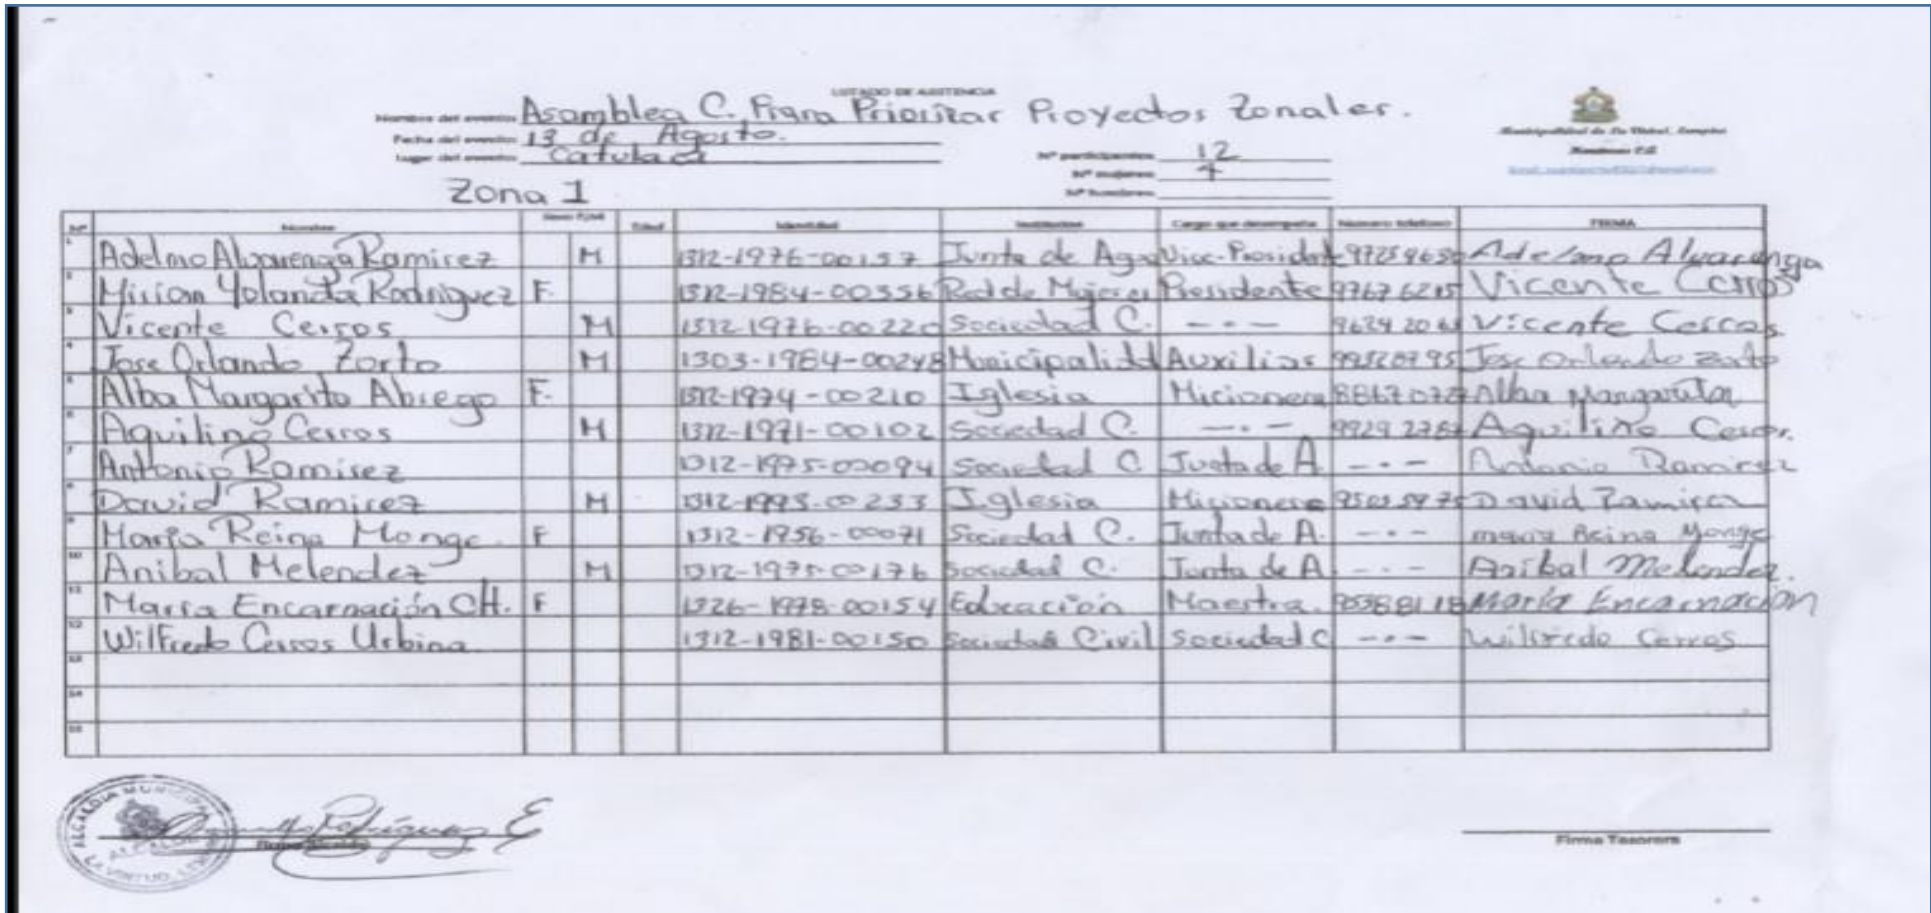 LISTADO DE ASISTENCIA
Nombre del evento: Asamblea C. Para Priorizar Proyectos Zonales.
Fecha del evento: 13 de Agosto.
Lugar del evento:
Nº participantes 12
Nº mujeres 4
Nº hombres
Municipalidad de La Virtud, Lempira
Honduras C.A
Zona 1
Nº Nombre Sexo F/M Edad Identidad Institucion Cargo que desempeña Numero telefono FIRMA
1 Adelmo Alvarenga Ramirez M 1312-1976-00157 Junta de Agua Vice-Presidente Adelmo Alvarenga
2 Mirian Yolanda Rodriguez F. 1312-1984-00356 Red de Mujeres Presidente 9767 6215 Vicente Cerros
3 Vicente Cerros M 1312-1976-00220 Sociedad C. - - - Vicente Cerros
4 Jose Orlando Zorto M 1303-1984-00248 Municipalidad Auxiliar Jose Orlando Zorto
5 Alba Margarito Abrego F. 1312-1974-00210 Iglesia Micionera Alba Margarita
6 Aquilino Cerros M 1312-1971-00102 Sociedad C. - - - Aquilino Cerros.
7 Antonio Ramirez 1312-1975-00094 Sociedad C Junta de A. - - - Antonio Ramirez
8 David Ramirez M 00233 Iglesia Micionero David Ramirez
9 Maria Reina Monge. F 1312-1956-00071 Sociedad C. Junta de A. - - - Maria Reina Monge
10 Anibal Melendez M 1312-1975-00176 Sociedad C. Junta de A. - - - Anibal Melendez.
11 María Encarnación CH. F 1326-1978-00154 Educación Maestra María Encarnación
12 Wilfredo Cerros Urbina 1312-1981-00150 Sociedad Civil Sociedad C - - - Wilfredo Cerros
13
14
15
ALCALDIA MUNICIPAL
ALCALDE
LA VIRTUD, LEMPIRA
Rodríguez E
Firma Tesorera